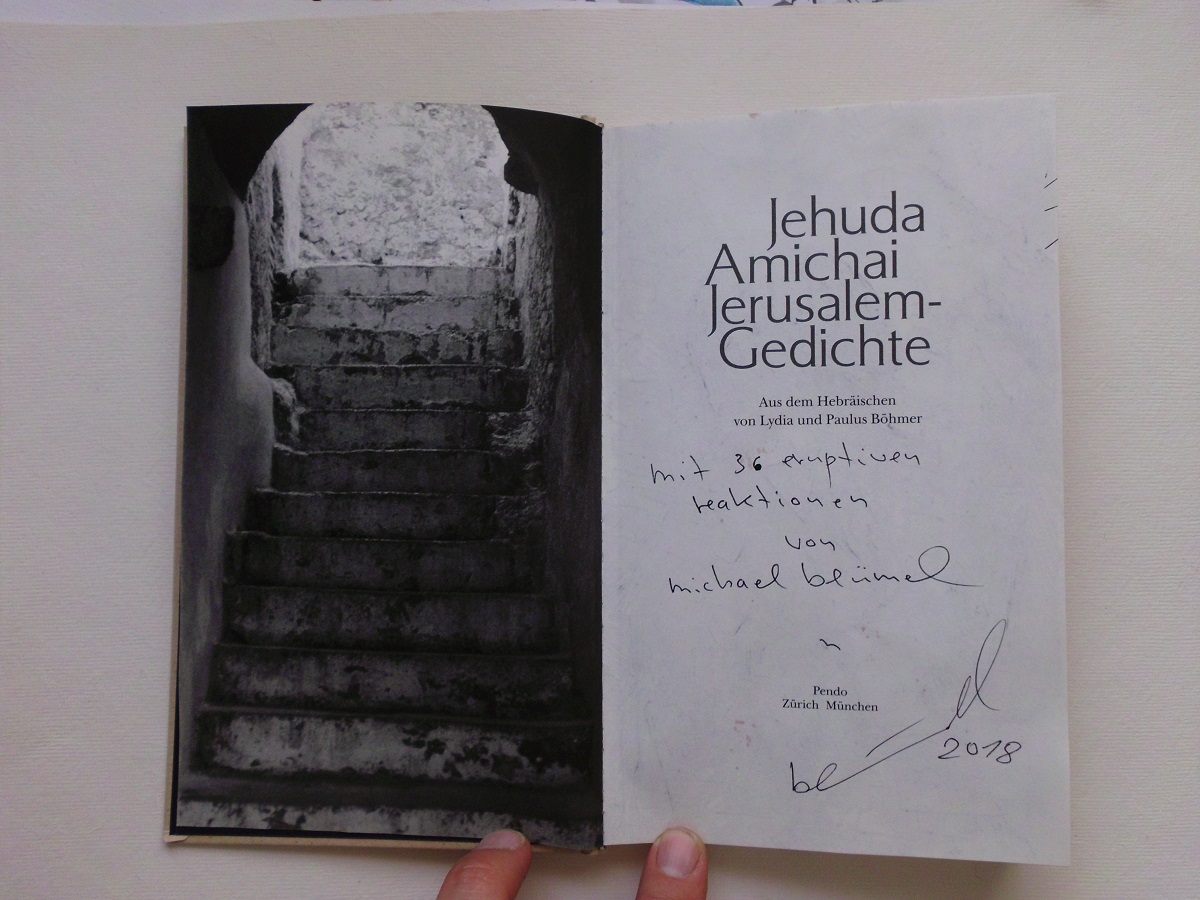 Jehuda
Amichai
Jerusalem-
Gedichte
Aus dem Hebräischen
von Lydia und Paulus Böhmer
mit 36 eruptiven
reaktionen
von
michael blümel
Pendo
Zürich München
2018